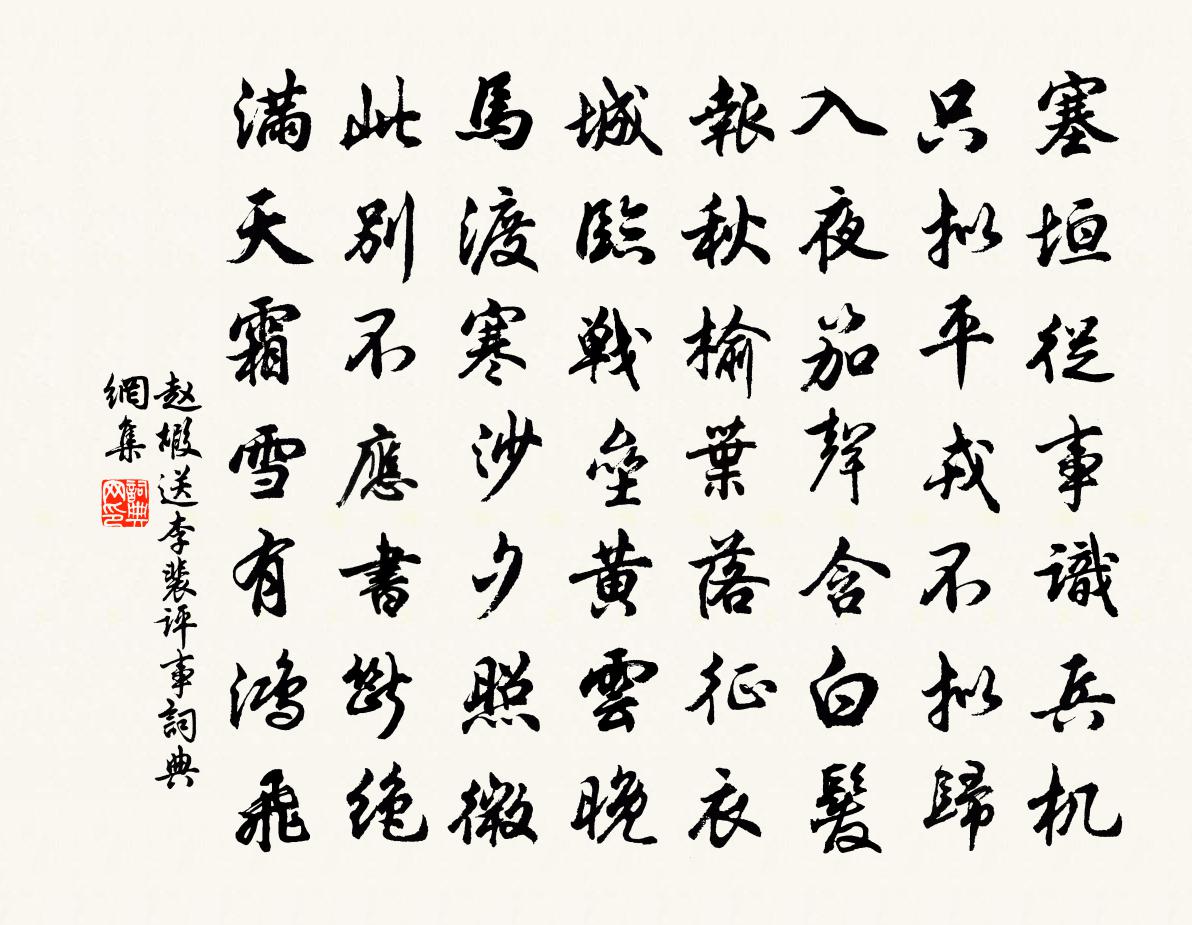 塞垣從事識兵机
只拟平戎不拟歸
入夜笳聲含白髮
報秋榆葉落征衣
城臨戰壘黃雲晚
馬渡寒沙夕照微
此別不應書斷絕
滿天霜雪有鴻飛
赵嘏送李裴评事詞典
網集
詞典
网印